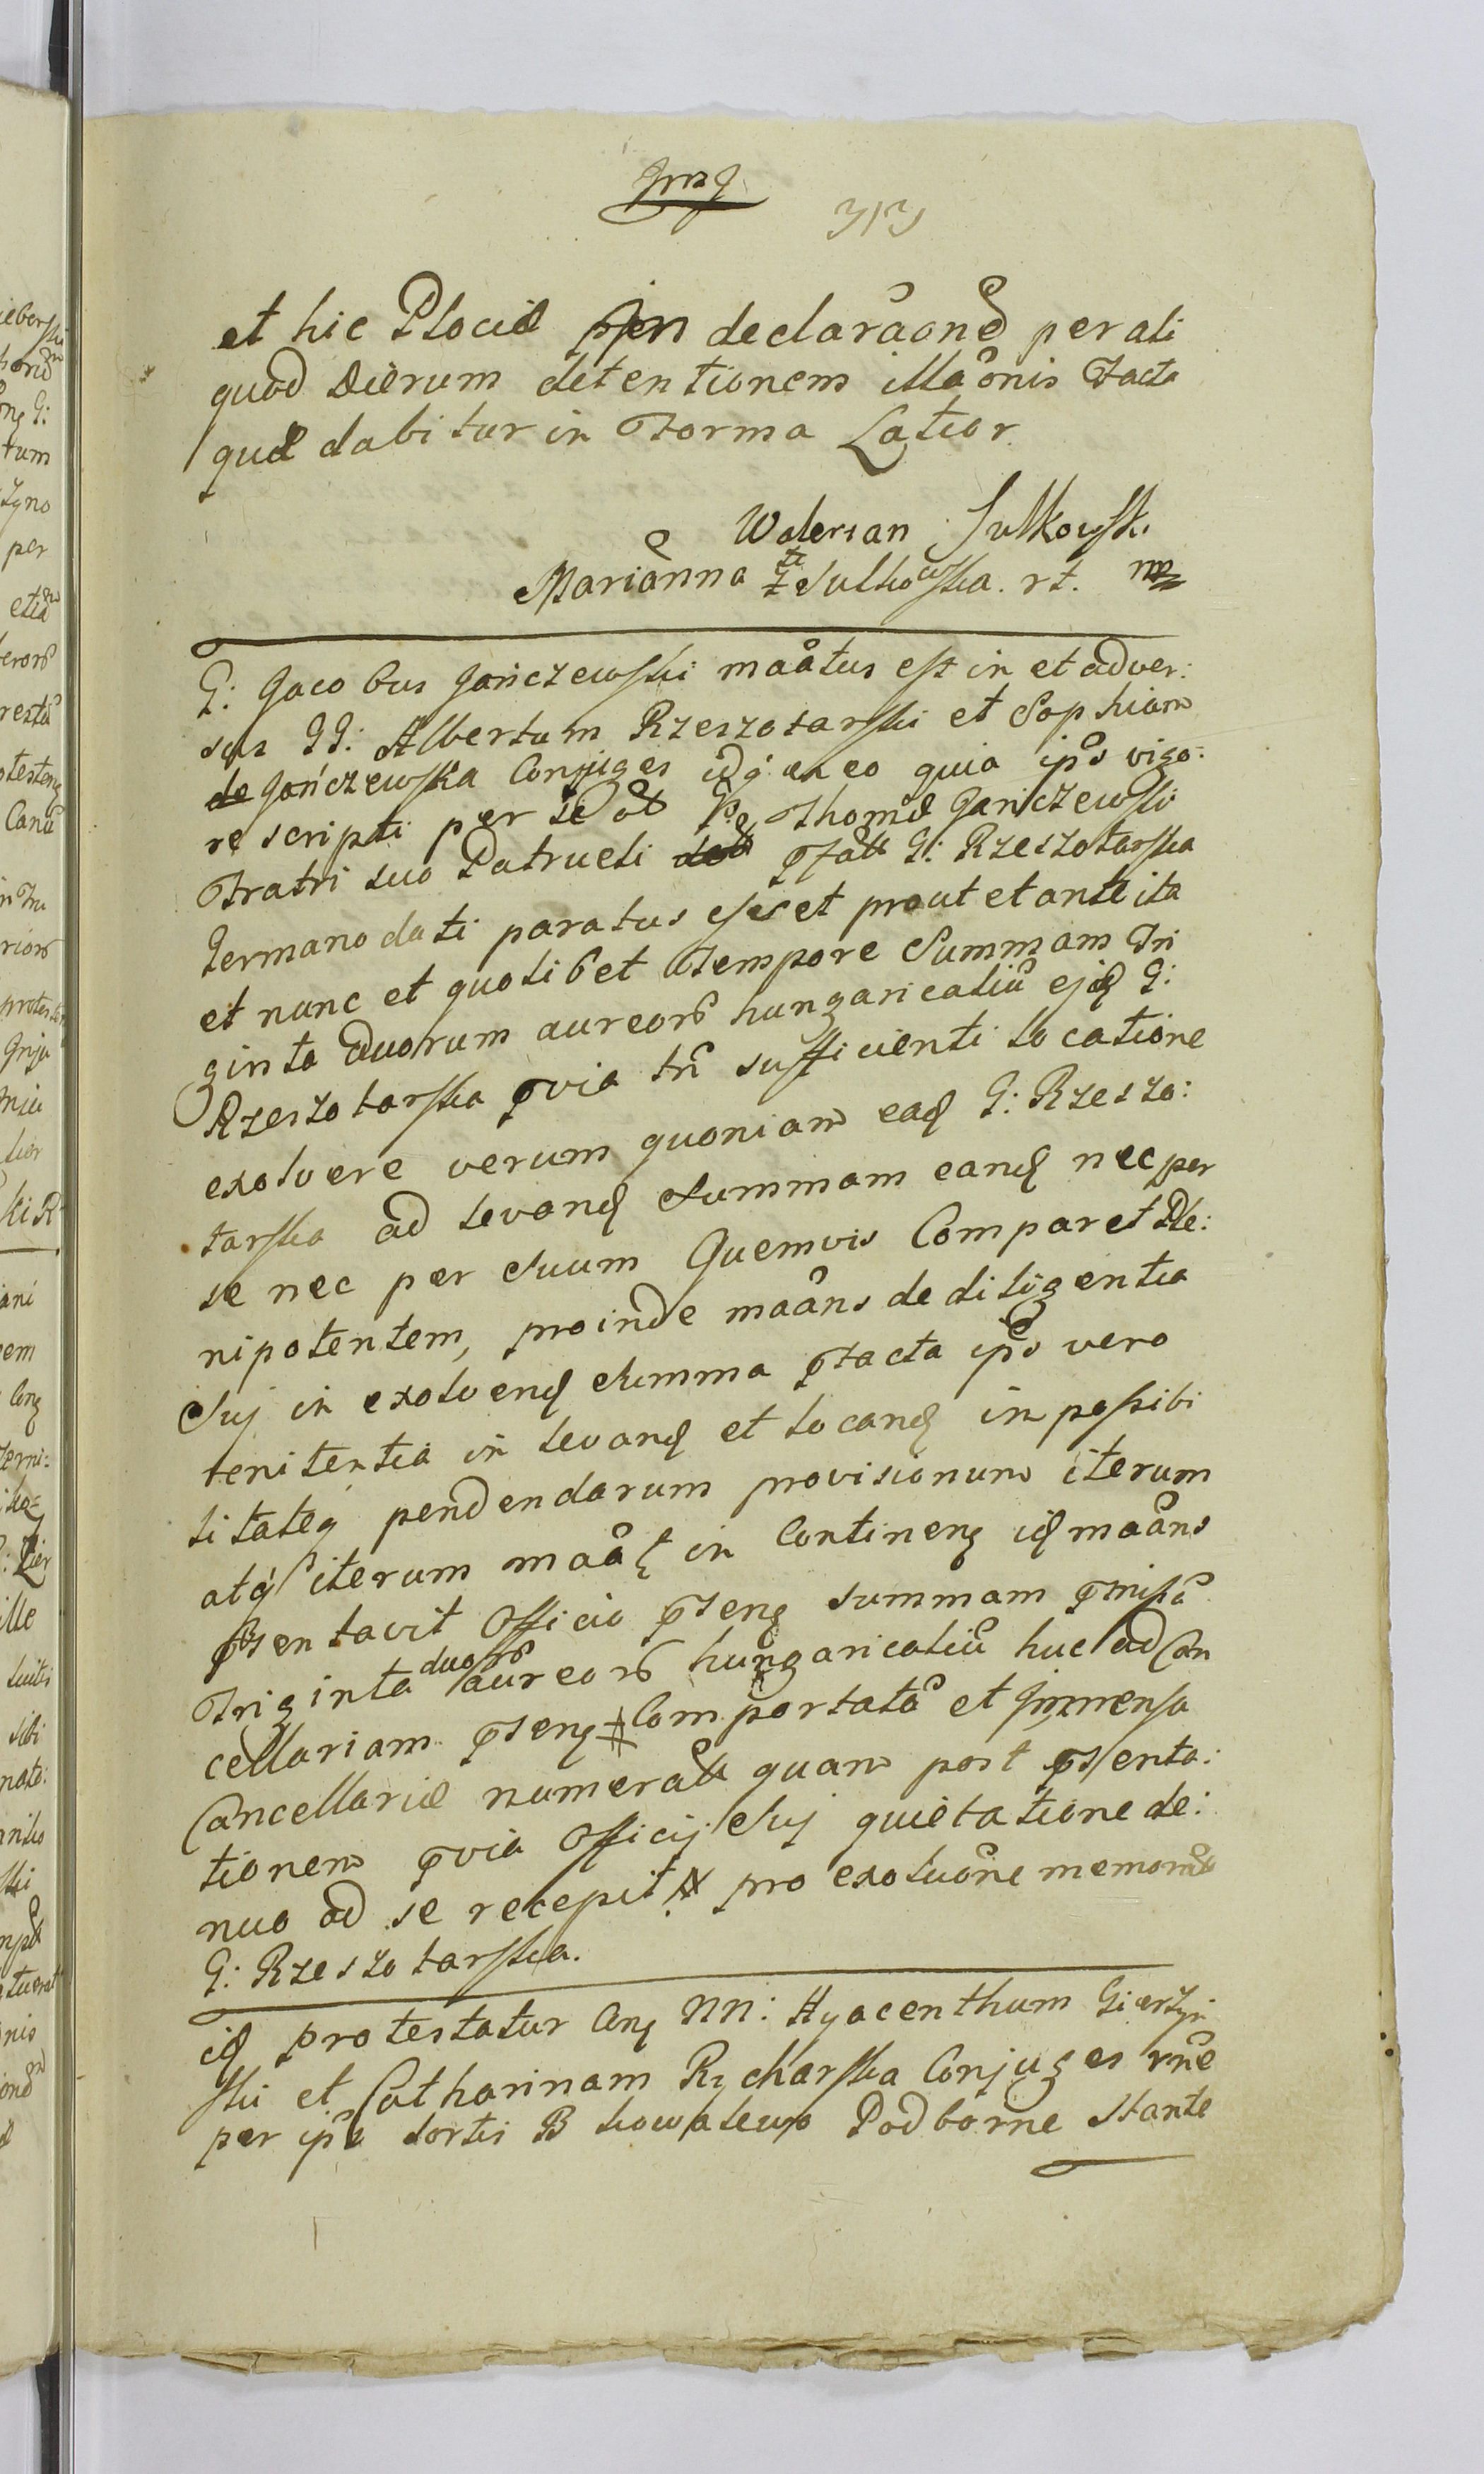 313
et hic Plociæ declaraone per ali
quod Dierum detentionem illaonis facta
quæ dabitur in Forma Latior
Walerian Sulkowski
Marianna z Sulkowska. rt. mp
G: Jacobus Gończewski maatus est in et adver:
sus GG: Albertum Rzeszotarski et Sophiam
de Gończewska Conjuges idq ex eo quia ipse vigo:
re scripti per se Thomæ Gończewski
Fratri suo Patrueli pfatæ G: Rzeszotarska
Germano dati paratus esset prout et antè ita
et nunc et quolibet tempore Summam Tri
ginta Duorum aureorum hungaricaliu ejd G:
Rzeszotarska pvia tn sufficienti locatione
exolvere verum quoniam ead G: Rzeszo:
tarska ad levand Summam eand nec per
se nec per Suum Quemvis Comparet Ple:
nipotentem, proinde maans de diligentia
Suj in exolvend Summa pfacta ipo vero
renitentia in levand et locand impossibi
litateq pendendarum provisionum iterum
atq iterum maat in Continen id maans
psentavit Officio pseng summam pmissa
Triginta duoru aureoru hungaricaliu huc ad Can
cellariam pseng Comportata et Jn mensa
Cancellariæ numeratæ quam post psenta:
tionem pvia Officij Suj quietatione de:
nuo ad se recepit pro exoluone memoratæ
G: Rzeszotarska.
id protestatur Cong NN: Hyacenthum Gierzyn
ski et Catharinam Rycharska Conjuges rne
per ipos sortis B Kowalewo Podborne stante